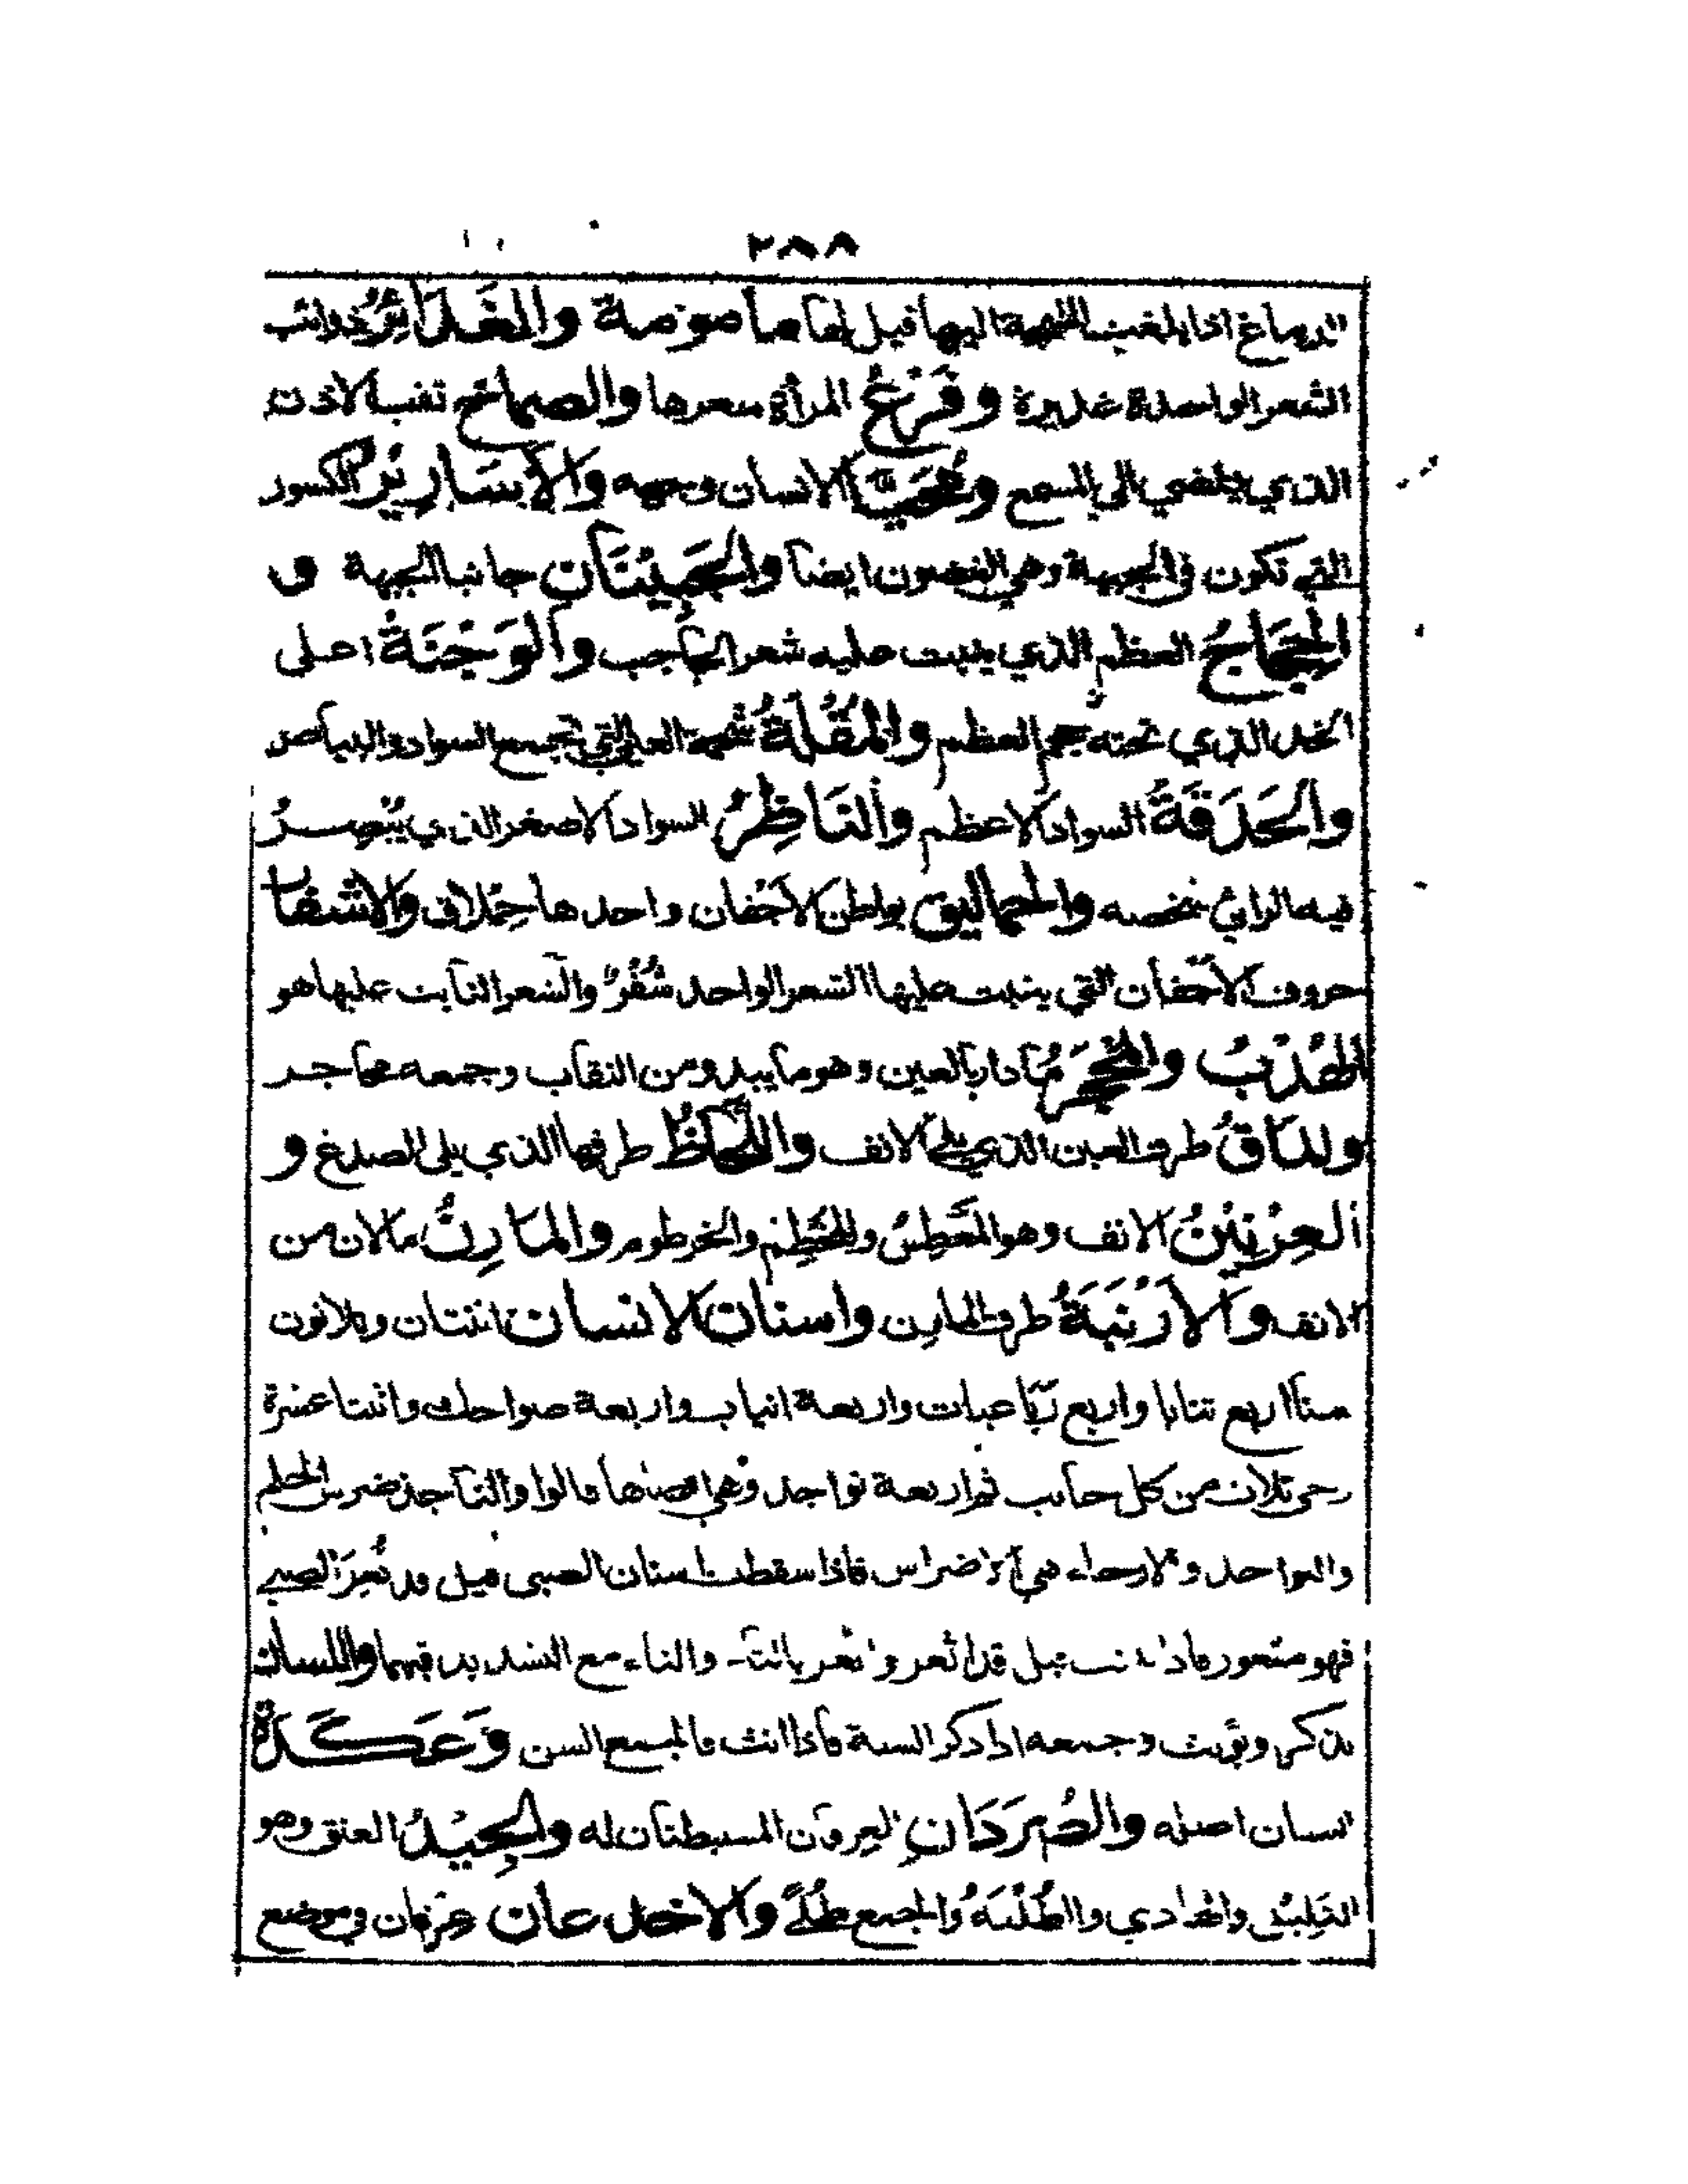 ٢٨٨
الدماغ اذا بلغت الشجة اليها قيل لها مأمومة والغَدَائِرُ ذوائب
الشعر الواحدة غديرة وفَرْعُ المرأة شعرها والصماخ ثقب الاذن
الذي يفضي الى السمع ومُحَيَّا الانسان وجهه والأسَارِيْرُ الكسور
التي تكون في الجبهة وهي الغضون ايضا والجَبِيْنَان جانبا الجبهة و
الحِجَاجُ العظم الذي ينبت عليه شعر الحاجب والوَجْنَةُ اعلى
الخد الذي تحته حجم العظم والمُقْلَةُ شحمة العين التي تجمع السواد والبياض
والحَدَقَةُ السواد الاعظم والنَاظِرُ السواد الاصغر الذي يُبْصِرُ
فيه الرائي شخصه والحماليق بواطن الأجْفان واحدها حِمْلاق والاشفار
حروف الأجفان التي ينبت عليها الشعر الواحد شُفْرٌ والشعر النابت عليها هو
الهُدْبُ والمَحْجِرُ مَا دار بالعين وهو ما يبدو من النقاب وجمعه محاجر
والمَاقُ طرف العين الذي يلي الانف واللَّحَاظُ طرفها الذي يلي الصدغ و
العِرْنِيْنُ الانف وهو المَعْطِسُ والمَخْطِمُ والخرطوم والمَارِنُ ما لان من
الانف والأَرْنَبَةُ طرف المارن واسنان الانسان اثنتان وثلاثون
سنا اربع ثنايا واربع رَبَاعيات واربعة انياب واربعة ضواحك واثنتا عشرة
رحى ثلاث من كل جانب ثم اربعة نواجذ وهي اقصاها قالوا والناجذ ضرس الحلم
والنواجذ والارحاء هي الاضراس فاذا سقطت اسنان الصبي قيل قد ثُغِرَ الصبي
فهو مثغور فاذا نبتت قيل قد اثغر واتغر بالثاء والتاء مع التشديد فيهما واللسان
يذكر ويؤنث وجمعه اذا ذكر السنة فاذا انث فالجمع السن وعَكَدَةُ
اللسان اصله والصُرَدَانِ العرقان المستبطنان له والجِيْدُ العنق وهو
التَلِيْلُ والهادي والطُلْيَةُ والجمع طُلًى والاخدعان عرقان في موضع